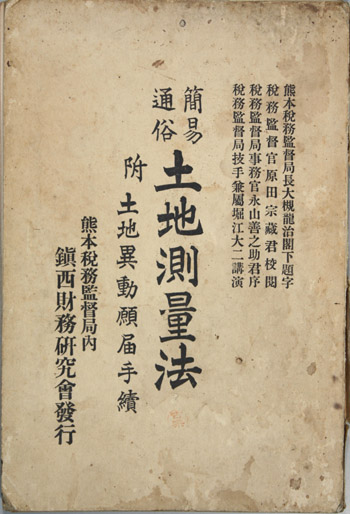 熊本税務監督局長大槻龍治閣下題字
税務監督官原田宗蔵君校閲
税務監督局事務官永山善之助君序
税務監督局技手兼屬堀江大二講演
簡易
通俗
土地測量法
附土地異動願届手續
熊本税務監督局内
鎭西財務研究會發行